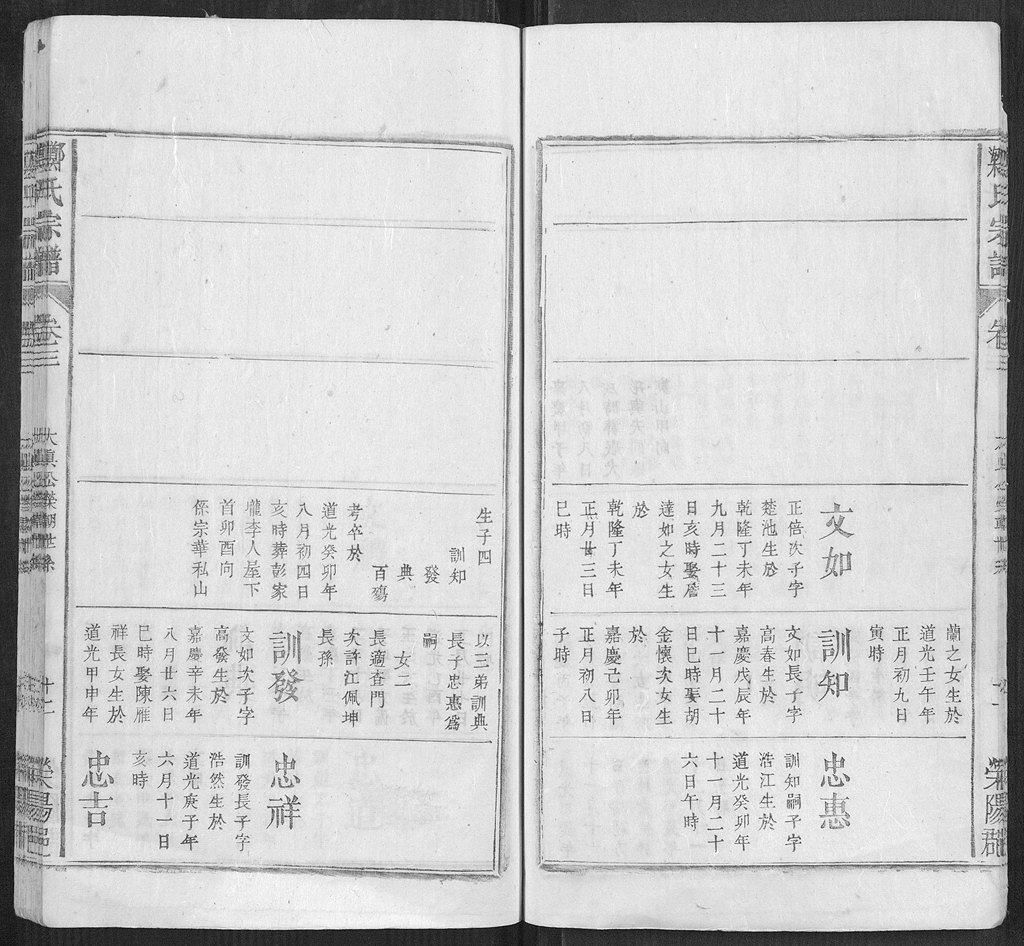 鄭氏宗譜
卷三
滎陽郡
文如
正倍次子字
楚池生於
乾隆丁未年
九月二十三
日亥時娶詹
達如之女生
於
乾隆丁未年
正月廿三日
巳時
蘭之女生於
道光壬午年
正月初九日
寅時
訓知
文如長子字
高春生於
嘉慶戊辰年
十一月二十
日巳時娶胡
金懷次女生
於
嘉慶己卯年
正月初八日
子時
忠惠
訓知嗣子字
浩江生於
道光癸卯年
十一月二十
六日午時
生子四
訓知
發
典
百殤
考卒於
道光癸卯年
八月初四日
亥時葬彭家
壠李人屋下
首卯酉向
係宗華私山
以三弟訓典
長子忠惠為
嗣
女二
長適查門
次許江佩坤
長孫
訓發
文如次子字
高發生於
嘉慶辛未年
八月廿六日
巳時娶陳雁
祥長女生於
道光甲申年
忠祥
訓發長子字
浩然生於
道光庚子年
六月十一日
亥時
忠吉
鄭氏宗譜
卷三
十二
滎陽邑